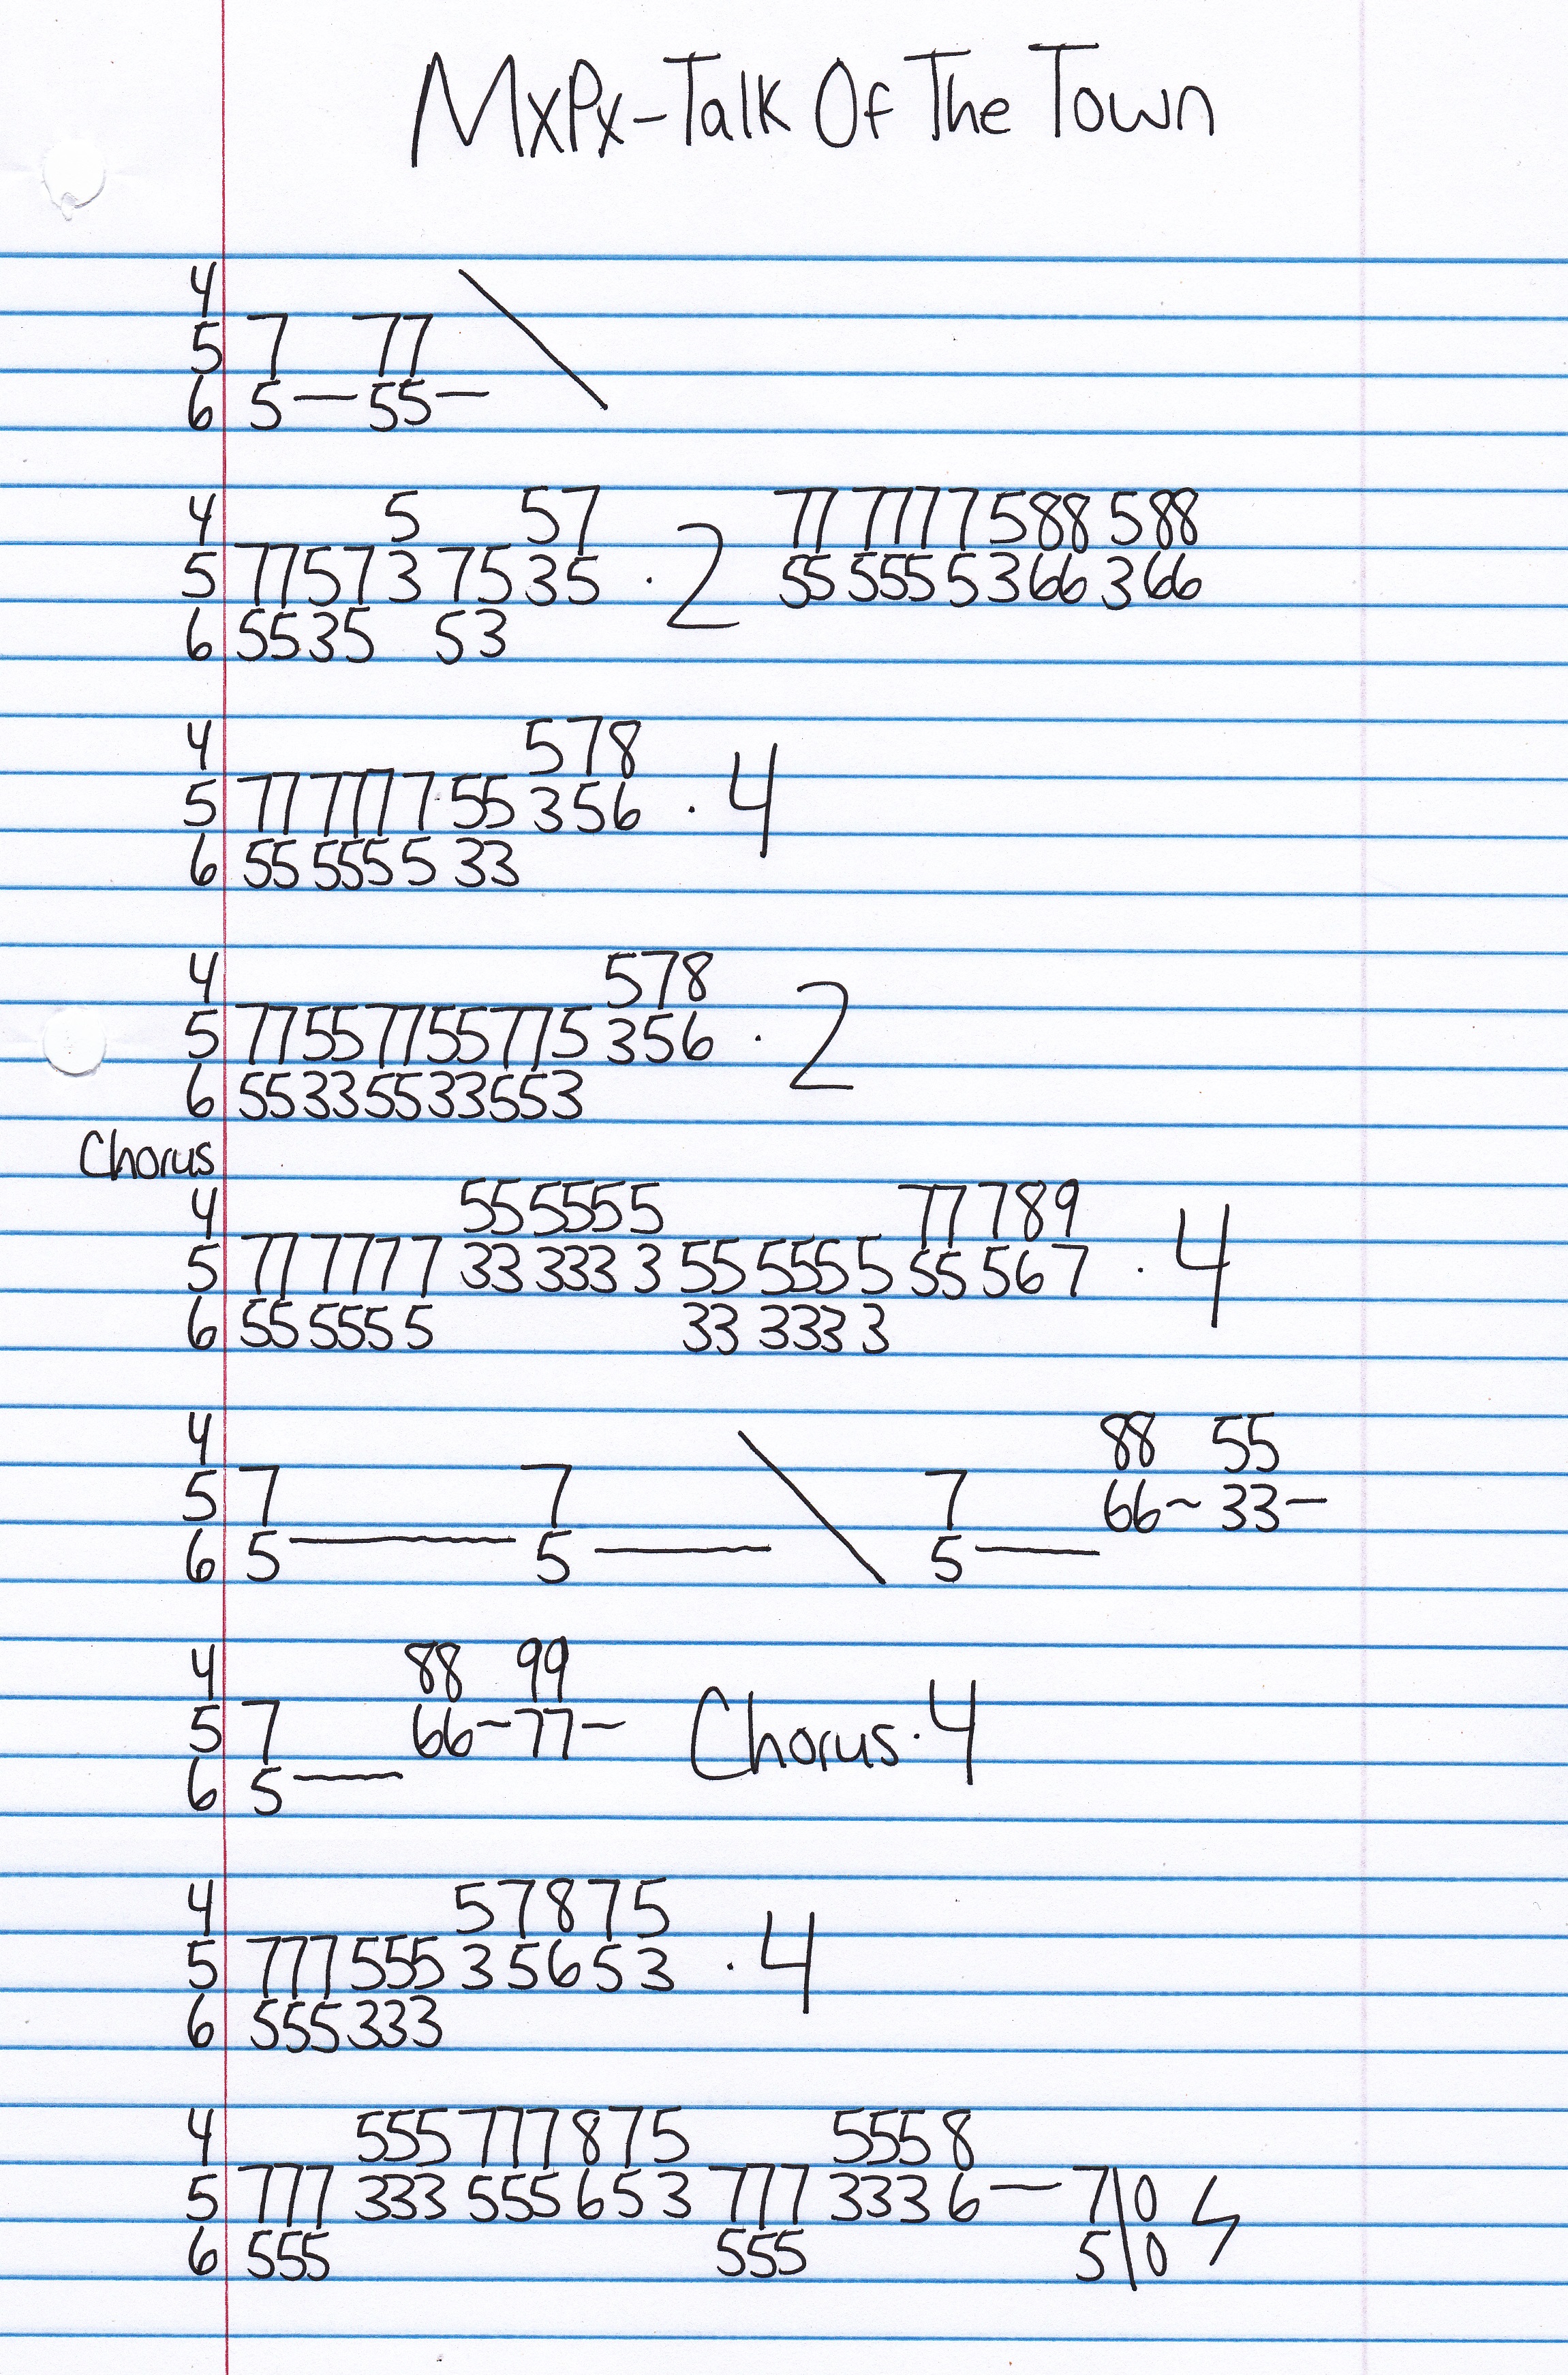 MxPx-Talk Of The Town
4
5 7 77
6 5—55—
4 5 57 77 7777588 588
5 77573 7535 .2 55 5555366 366
6 5535 53
4 578
5 77 7777 55 356 .4
6 55 5555 33
4 578
5 77557755775 356 .2
6 55335533553
Chorus
4 55 5555 77 789
5 77 7777 33 3333 55 5555 55 567 .4
6 55 5555 33 3333
4 88 55
5 7 7 7 66~33—
6 5—5—5—
4 88 99
5 7 66~77~ Chorus.4
6 5—
4 57875
5 777555 35653 .4
6 555333
4 555 777875 5558
5 777 333 555653 777 3336—7\0
6 555 555 5\0